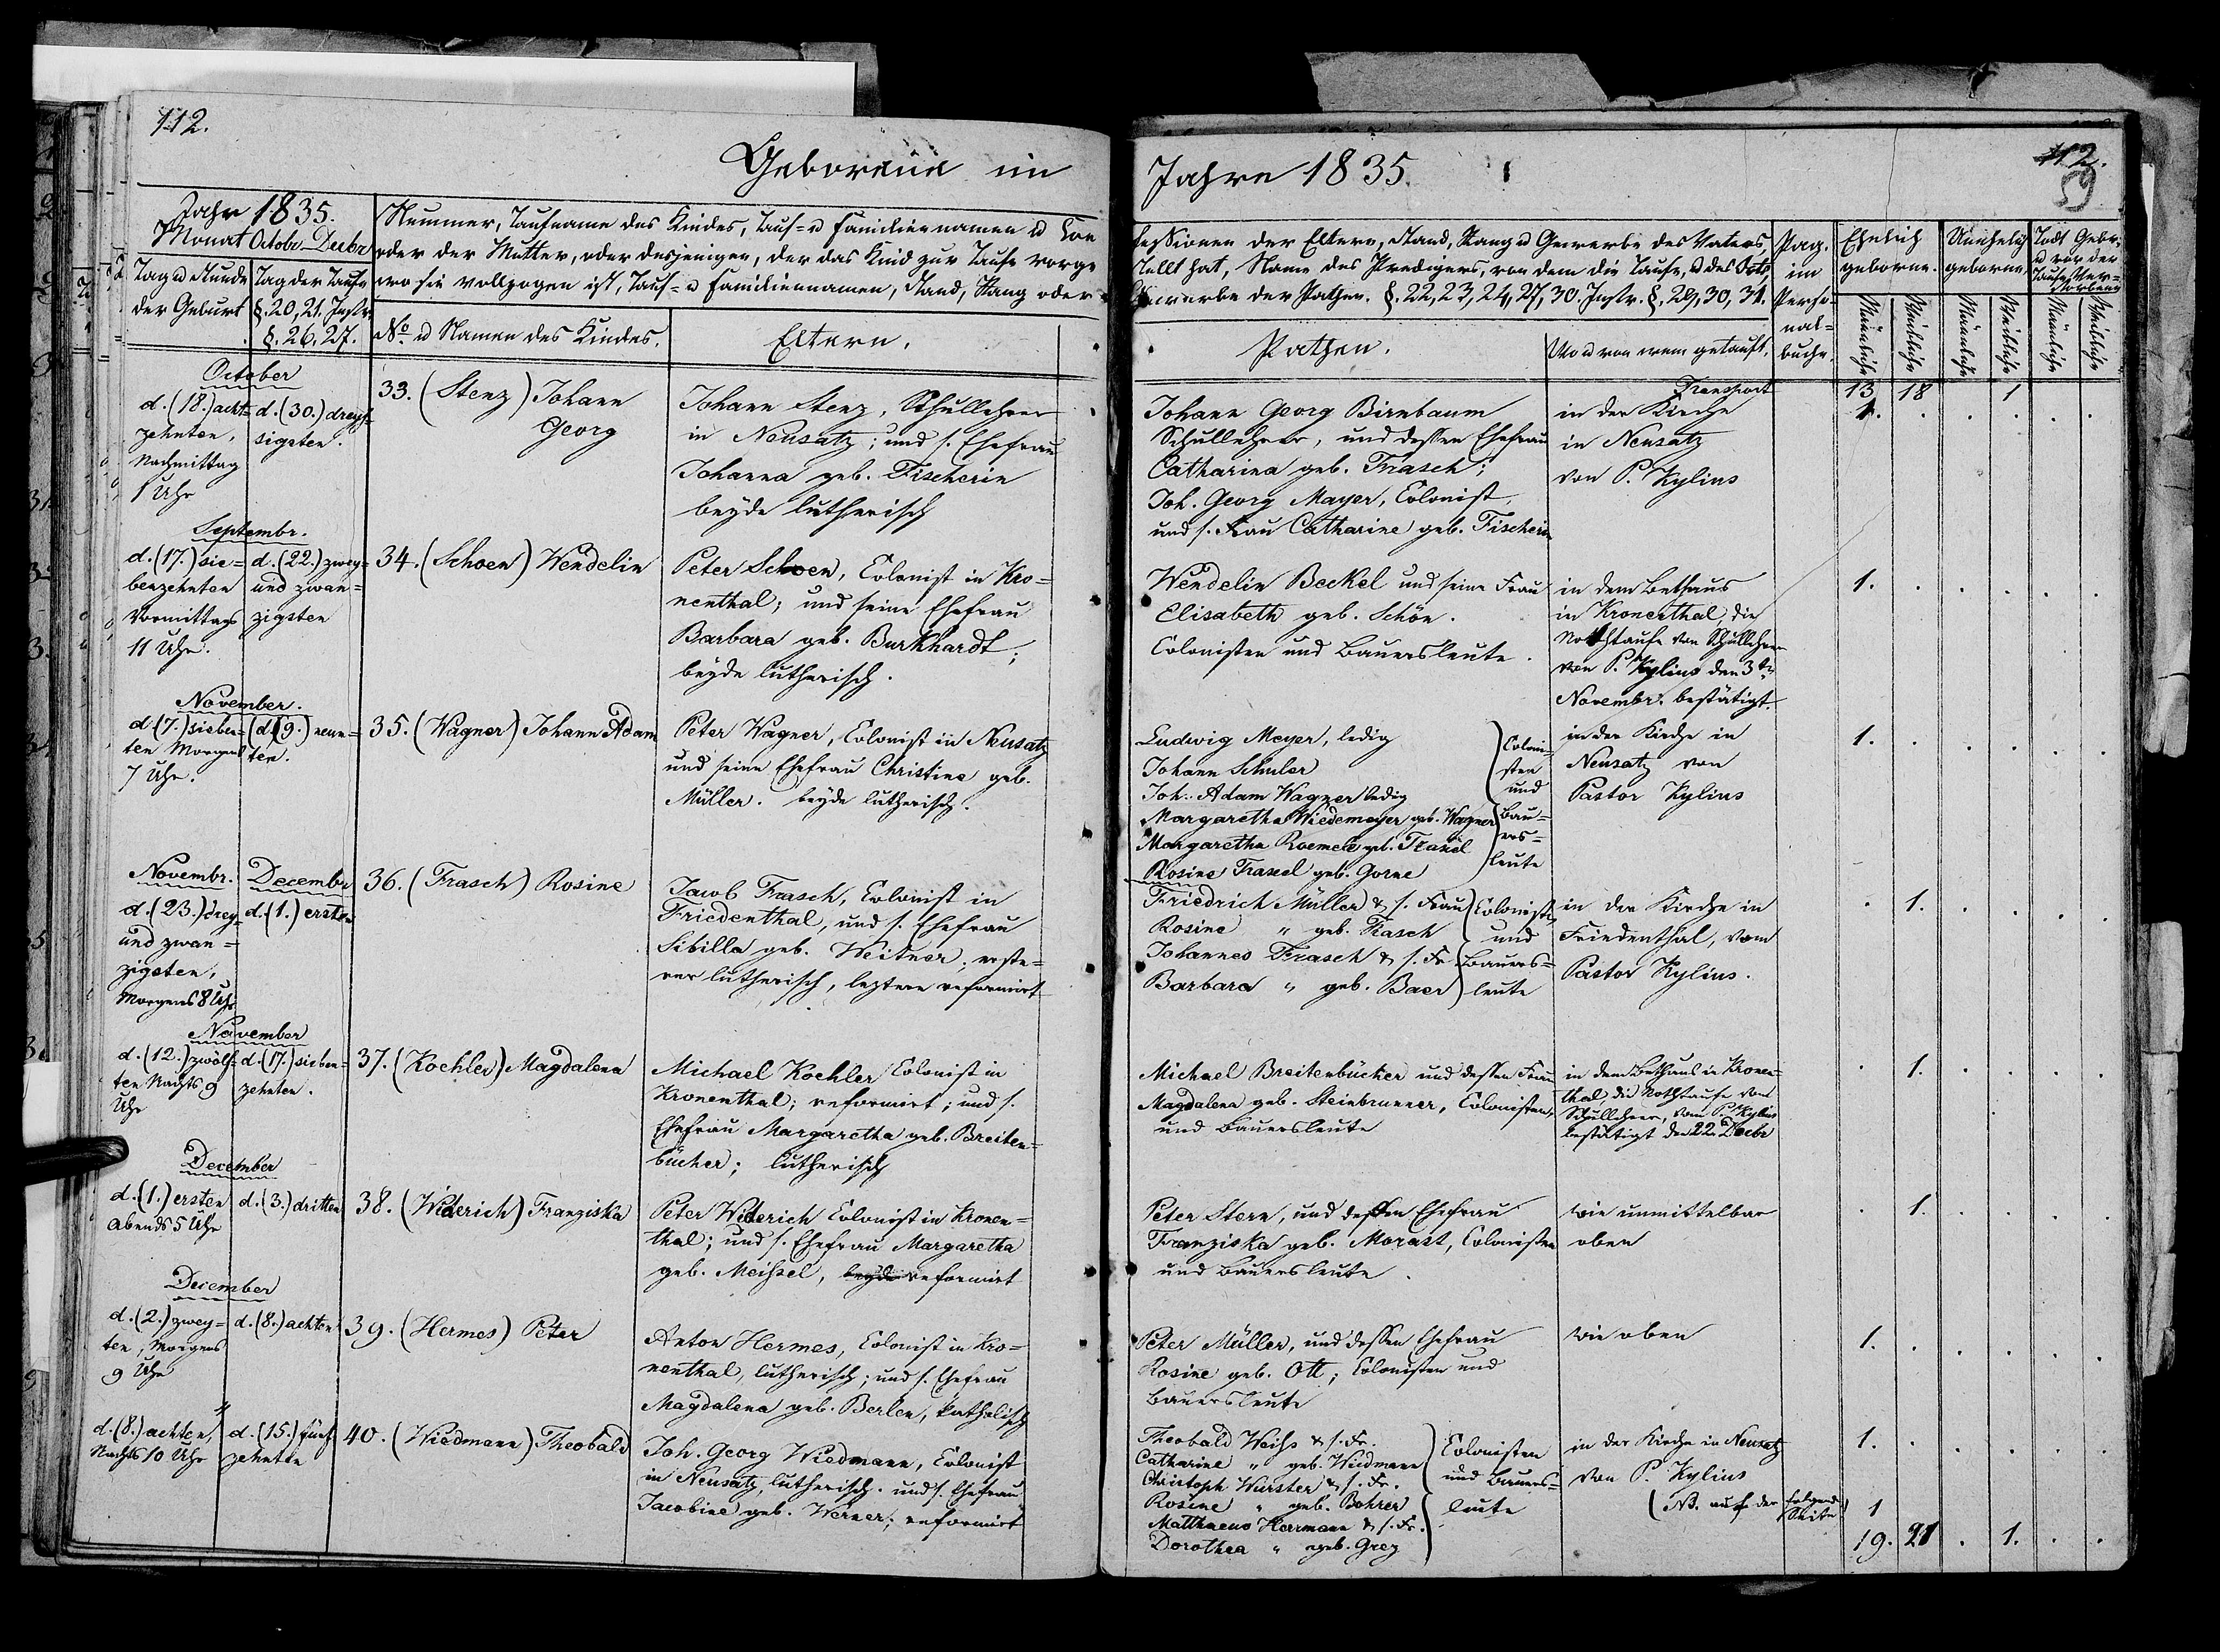 112.
Geborene im
Jahr 1835.
Monat Octobr-Decbr
Nummer, Taufname des Kindes, Tauf- u Familiennamen u Con
oder der Mutter, oder desjenigen, der das Kind zur Taufe vorge
wo sie vollzogen ist, Tauf- u Familiennamen, Stand, Rang oder
Tag u Stunde
der Geburt
Tag der Taufe
§. 20, 21. Instr.
§. 26, 27.
No. u Namen des Kindes.
Eltern.
October
d. (18.) acht-
zehnten,
Nachmittag
1 Uhr
d. (30.) dreys-
sigsten.
33. (Stenz) Johann
Georg
Johann Stenz, Schullehrer
in Neusatz; und s. Ehefrau
Johanna geb. Fischerin
beyde lutherisch
Septembr.
d. (17.) sie-
benzehnten
Vormittags
11 Uhr.
d. (22.) zwey-
und zwan-
zigsten
34. (Schoen) Wendelin
Peter Schoen, Colonist in Kro-
nenthal; und seine Ehefrau
Barbara geb. Burkhardt;
beyde lutherisch.
November.
d. (7.) sieben-
ten Morgens
7 Uhr.
(d. (9.) neun-
ten.
35. (Wagner) Johann Adam
Peter Wagner, Colonist in Neusatz
und seine Ehefrau Christine geb.
Müller. beyde lutherisch.
Novembr.
d. (23.) drey-
und zwan-
zigsten,
Morgens 8 Uhr
Decembr
d. (1.) ersten
36. (Frasch) Rosine
Jacob Frasch, Colonist in
Friedenthal, und s. Ehefrau
Sibilla geb. Weitner; erste-
rer lutherisch, leztere reformirt
November
d. (12.) zwölf-
ten Nachts 9
Uhr
d. (17.) sieben-
zehnten.
37. (Koehler) Magdalena
Michael Koehler Colonist in
Kronenthal; reformirt; und s.
Ehefrau Margaretha geb. Breiten-
bücher; lutherisch
December
d. (1.) ersten
abends 5 Uhr
d. (3.) dritten
38. (Widerich) Franziska
Peter Widerich Colonist in Kronen-
thal; und s. Ehefrau Margaretha
geb. Meissel, beyde reformirt
December
d. (2.) zwey-
ten, Morgens
9 Uhr
d. (8.) achten
39. (Hermes) Peter
Anton Hermes, Colonist in Kro-
nenthal, lutherisch; und s. Ehefrau
Magdalena geb. Berlen, katholisch
d. (8.) achten,
Nachts 10 Uhr
d. (15.) fünf-
zehnten
40. (Wiedmann) Theobald
Joh. Georg Wiedmann, Colonist
in Neusatz, lutherisch. und s. Ehefrau
Jacobine geb. Werner; reformirt
Jahre 1835.
112.
59
fessionen der Eltern, Stand, Rang u Gewerbe des Vaters,
stellt hat, Name des Predigers, von dem die Taufe, u des Orts,
Gewerbe der Pathen. §. 22, 23, 24, 27, 30. Instr. §. 29, 30, 31.
Pag.
im
Perso-
nal-
buche.
Ehelich
geborne.
Unehelich
geborne.
Todt Gebr.
u vor der
Taufe Ver-
storbene
Pathen.
Wo u von wem getauft.
Männliche
Weibliche
Männliche
Weibliche
Männliche
Weibliche
Transport
13 18 1
Johann Georg Birnbaum
Schullehrer, und dessen Ehefrau
Catharina geb. Frasch;
Joh. Georg Mayer, Colonist,
und s. Frau Catharine geb. Fischerin
in der Kirche
in Neusatz
von P. Kylius
1.
Wendelin Beckel und seine Frau
Elisabeth geb. Schön.
Colonisten und Bauersleute.
in dem Bethaus
in Kronenthal, die
Nothtaufe von Schullehrer
von P. Kylius den 3tn
Novembr. bestätigt.
1.
Ludwig Meyer, ledig
Johann Schuler
Joh. Adam Wagner ledig
Margaretha Wiedemeyer geb. Wagner
Margaretha Roemele geb. Frasch
Rosine Frasch geb. Gorne
Coloni-
sten
und
Bau-
ers-
leute
in der Kirche in
Neusatz von
Pastor Kylius
1.
Friedrich Müller & s. Frau
Rosine " geb. Frasch
Johannes Frasch & s. Fr.
Barbara " geb. Baer
Colonisten
und
Bauers-
leute
in der Kirche in
Friedenthal, vom
Pastor Kylius.
1.
Michael Breitenbücher und dessen Frau
Magdalena geb. Steinbrunner, Colonisten,
und Bauersleute
in dem Bethaus in Kronen-
thal, die Nothtaufe vom
Schullehrer, vom P. Kylius
bestätigt den 22. Decbr
1.
Peter Stern, und dessen Ehefrau
Franziska geb. Morast, Colonisten
und Bauersleute.
wie unmittelbar
oben
1.
Peter Müller, und dessen Ehefrau
Rosine geb. Ott; Colonisten und
Bauersleute
wie oben
1.
Theobald Weihs & s. Fr.
Catharine " geb. Wiedmann
Christoph Wurster & s. Fr.
Rosine " geb. Bohrer
Matthaeus Herrmann & s. Fr.
Dorothea " geb. Grez
Colonisten
und Bauers-
leute
in der Kirche in Neusatz
von P. Kylius
1.
(NB. auf der folgende
Seite) 1
19. 21 . 1. . .